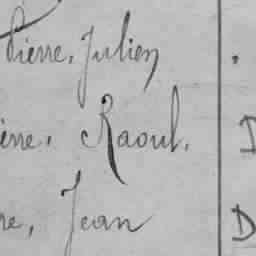 Pierre, Julien
erre, Raoul.
re, Jean D